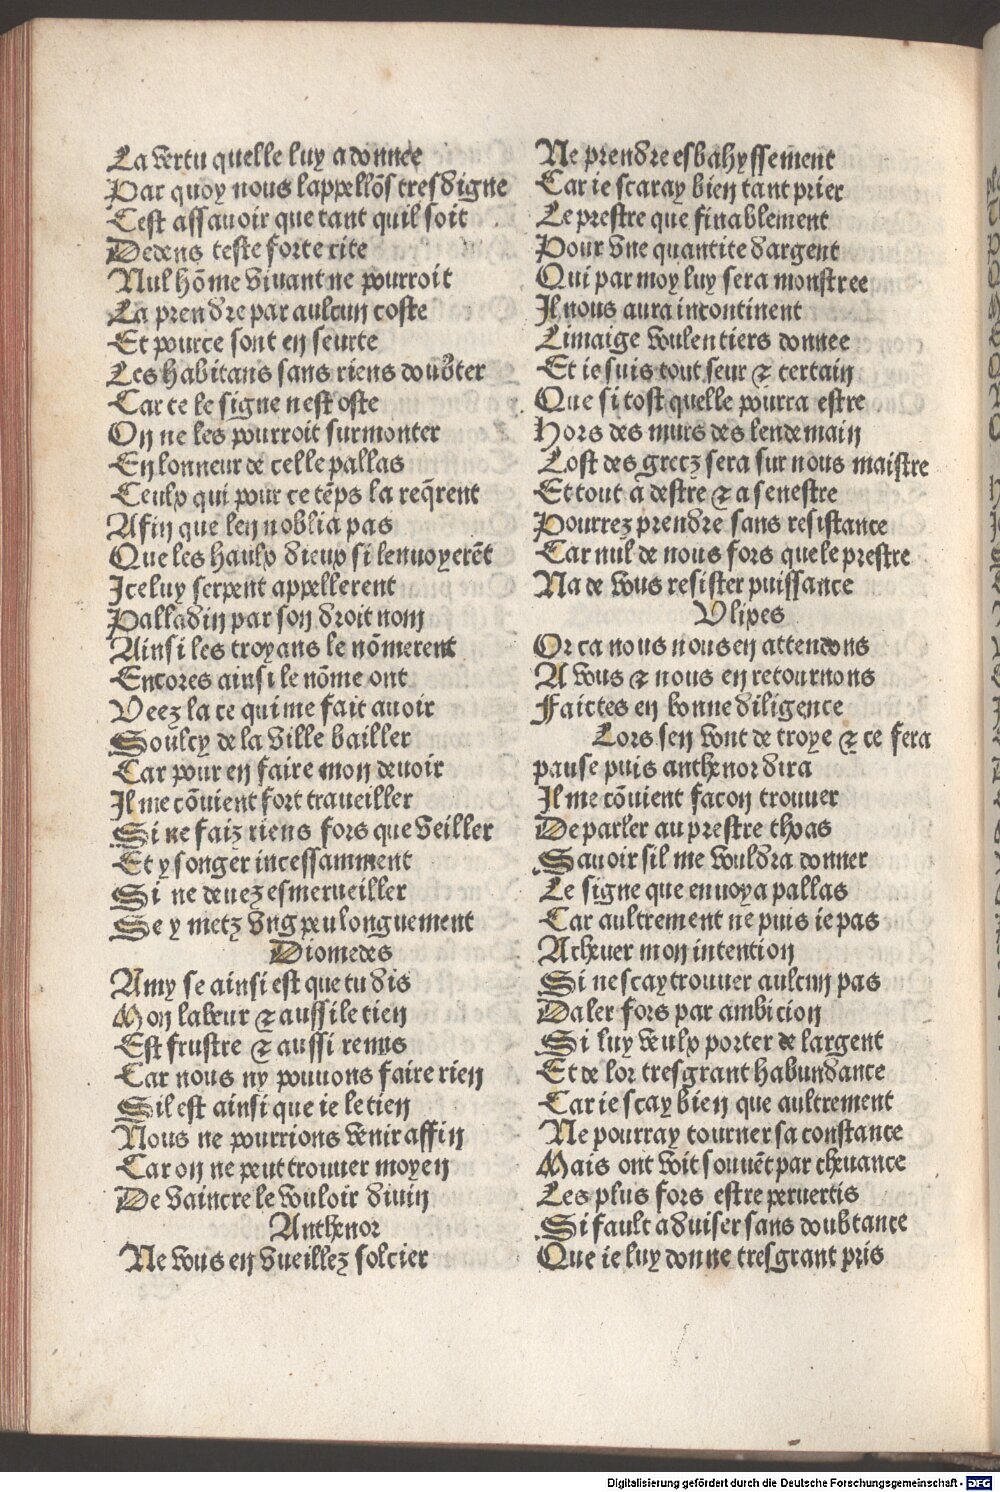 La vertu quelle luy a donnee
Par quoy nous lappellõs tresdigne
Cest assauoir que tant quil soit
Dedens teste forte cite
Nul hõme viuant ne pourroit
La prendre par aulcun coste
Et pource sont en seurte
Les habitans sans riens doubter
Car ce le signe nest oste
On ne les pourroit surmonter
En lonneur de celle pallas
Ceulx qui pour ce tẽps la reqrent
Afin que len noblia pas
Que les haulx dieux si lenuoyerẽt
Iceluy serpent appellerent
Palladin par son droit nom
Ainsi les troyans le nõmerent
Encores ainsi le nõme ont
Veez la ce qui me fait auoir
Soulcy de la ville bailler
Car pour en faire mon deuoir
Il me cõuient fort traueiller
Si ne faiz riens fors que veiller
Et y songer incessamment
Si ne deuez esmerueiller
Se y metz vng peu longuement
Diomedes
Amy se ainsi est que tu dis
Mon labeur & aussi le tien
Est frustre & aussi remis
Car nous ny pouuons faire rien
Sil est ainsi que ie le tien
Nous ne pourrions venir affin
Car on ne peut trouuer moyen
De vaincre le vouloir diuin
Anthenor
Ne vous en vueillez solcier
Ne prendre esbahyssement
Car ie scaray bien tant prier
Le prestre que finablement
Pour vne quantite dargent
Qui par moy luy sera monstree
Il nous aura incontinent
Limaige voulentiers donnee
Et ie suis tout seur & certain
Que si tost quelle pourra estre
Hors des murs des lendemain
Lost des grecz sera sur nous maistre
Et tout a destre & a senestre
Pourrez prendre sans resistance
Car nul de nous fors que le prestre
Na de vous resister puissance
Vlipes
Or ca nous nous en attendons
A vous & nous en retournons
Faictes en bonne diligence
Lors sen vont de troye & ce fera
pause puis anthenor dira
Il me cõuient facon trouuer
De parler au prestre thoas
Sauoir sil me vouldra donner
Le signe que enuoya pallas
Car aultrement ne puis ie pas
Acheuer mon intention
Si ne scay trouuer aulcun pas
Daler fors par ambicion
Si luy veulx porter de largent
Et de lor tresgrant habundance
Car ie scay bien que aultrement
Ne pourray tourner sa constance
Mais ont voit souuẽt par cheuance
Les plus fors estre peruertis
Si fault aduiser sans doubtance
Que ie luy donne tresgrant pris
Digitalisierung gefördert durch die Deutsche Forschungsgemeinschaft - DFG